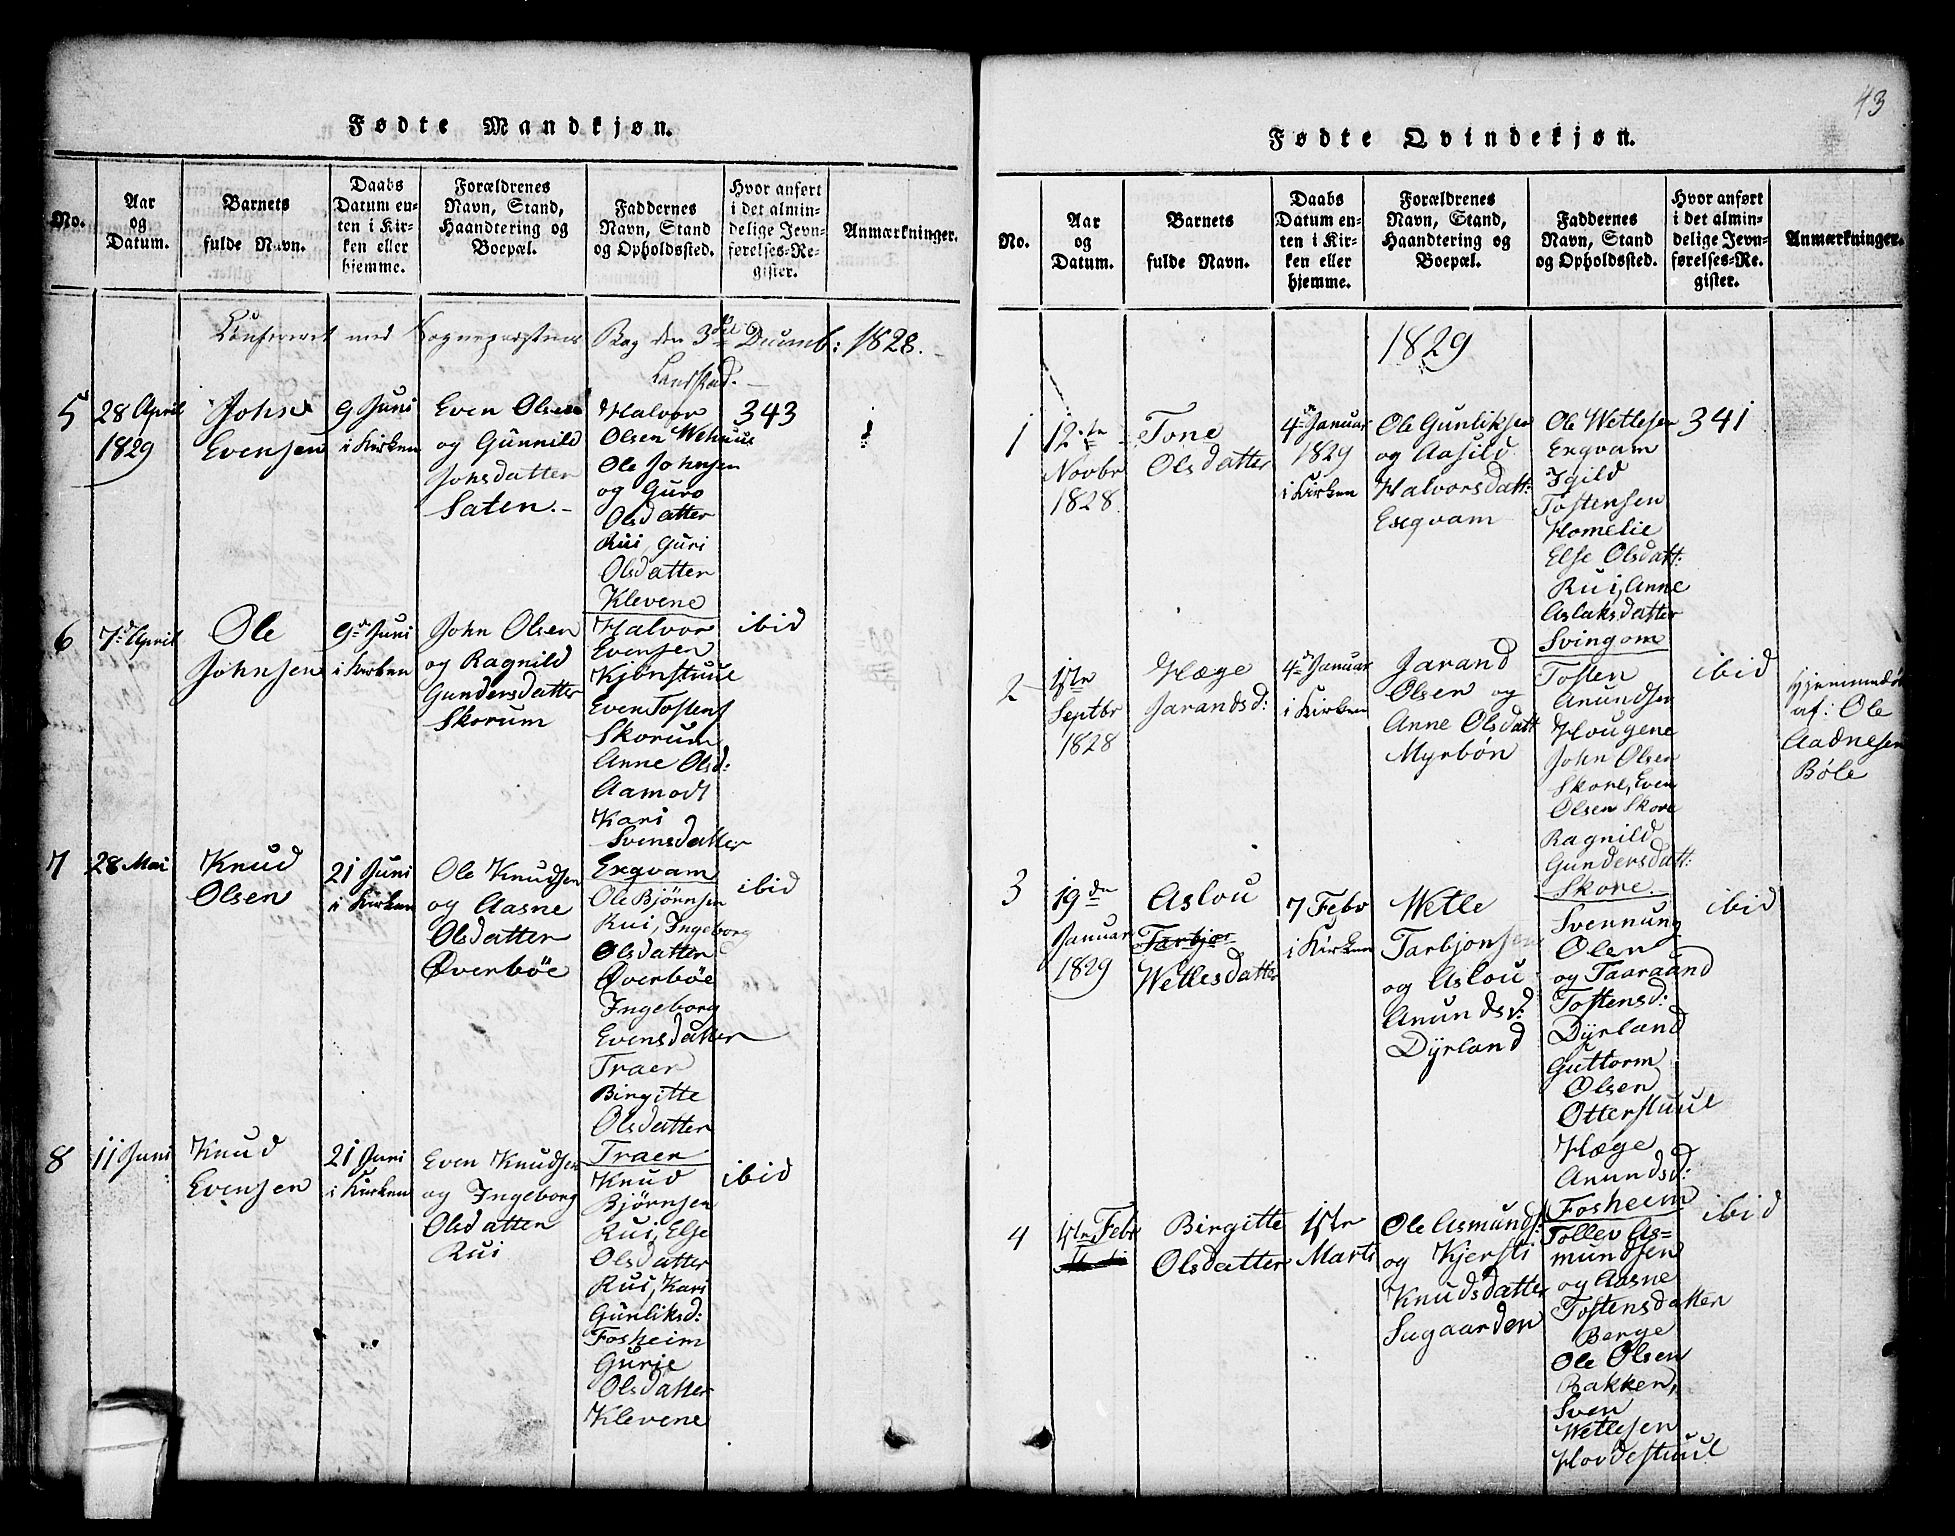 Fødte Mandkjøn.
No.
Aar
og
Datum.
Barnets
fulde Navn.
Daabs
Datum en-
ten i Kir-
ken eller
hjemme.
Forældrenes
Navn, Stand,
Haandtering og
Boepæl.
Faddernes
Navn, Stand
og Opholdssted.
Hvor anført
i det almin-
delige Jevn-
førelses-Re-
gister.
Anmærkninger.
Confereret med Sognepræstens Bog den 3die Decemb: 1828.
Landstad.
5
28 April
1829
John
Evensen
9 Juni
i Kirken
Even Olsen
og Gunnild
Johsdatter
Saten.
Halvor
Olsen Wehuus
Ole Johnsen
og Guro
Olsdatter
Rui, Guri
Olsdatter
Klevene
343
6
7d April
Ole
Johnsen
9d Juni
i Kirken
John Olsen
og Ragnild
Gundersdatter
Skorum
Halvor
Evensen
Kjønstuul
Even Tostens
Skorum
Anne Olsd:
Aamodt
Kari
Svensdatter
Exgvam
ibid
7
28 Mai
Knud
Olsen
21 Juni
i Kirken
Ole Knudsen
og Aasne
Olsdatter
Øverbøe
Ole Bjørnsen
Rui, Ingeborg
Olsdatter
Øverbøe
Ingeborg
Evensdatter
Traer
Birgitte
Olsdatter
Traer
ibid
8
11 Juni
Knud
Evensen
21 Juni
i Kirken
Even Knudsen
og Ingeborg
Olsdatter
Rui
Knud
Bjørnsen
Rui, Else
Olsdatter
Rui, Kari
Gunliksd:
Fosheim
Gurie
Olsdatter
Klevene
ibid
43
Fødte Qvindekjøn.
No.
Aar
og
Datum.
Barnets
fulde Navn.
Daabs
Datum en-
ten i Kir-
ken eller
hjemme.
Forældrenes
Navn, Stand,
Haandtering og
Boepæl.
Faddernes
Navn, Stand
og Opholdssted.
Hvor anført
i det almin-
delige Jevn-
førelses-Re-
gister.
Anmærkninger.
1829
1
12te
Novbr
1828
Tone
Olsdatter
4d Januar
1829
i Kirken
Ole Gunliksen
og Aasild
Halvorsdatt:
Exgvam
Ole Wetlesen
Exgvam
Igild
Tostensen
Homelie
Else Olsdatt:
Rui, Anne
Aslaksdatter
Svingom
341
2
1ste
Septbr
1828
Hæge
Jarandsd:
4d Januar
i Kirken
Jarand
Olsen og
Anne Olsdatt
Myrbøn
Tosten
Anundsen
Hougene
John Olsen
Skore, Even
Olsen Skore
Ragnild
Gundersdatt:
Skore.
ibid
Hjemmedøb
af: Ole
Aadnesen
Bøle
3
19de
Januar
1829
Aslou
Tarbjør
Wetlesdatter
7 Febr
i Kirken
Wetle
Tarbjonsen
og Aslou
Anundsd:
Dyrland
Svennung
Olen
og Taaraand
Tostensd:
Dyrland
Guttorm
Olsen
Otterstuul
Hæge
Anundsd:
Fosheim
ibid
4
1ste Febr
Birgitte
Olsdatter
1ste
Marts
Ole Asmunds:
og Kjersti
Knudsdatter
Sugaarden
Tollev As=
mundsen
og Aasne
Tostensdatter
Berge
Ole Olsen
Bakken,
Sven
Wetlesen
Hovdestuul
ibid